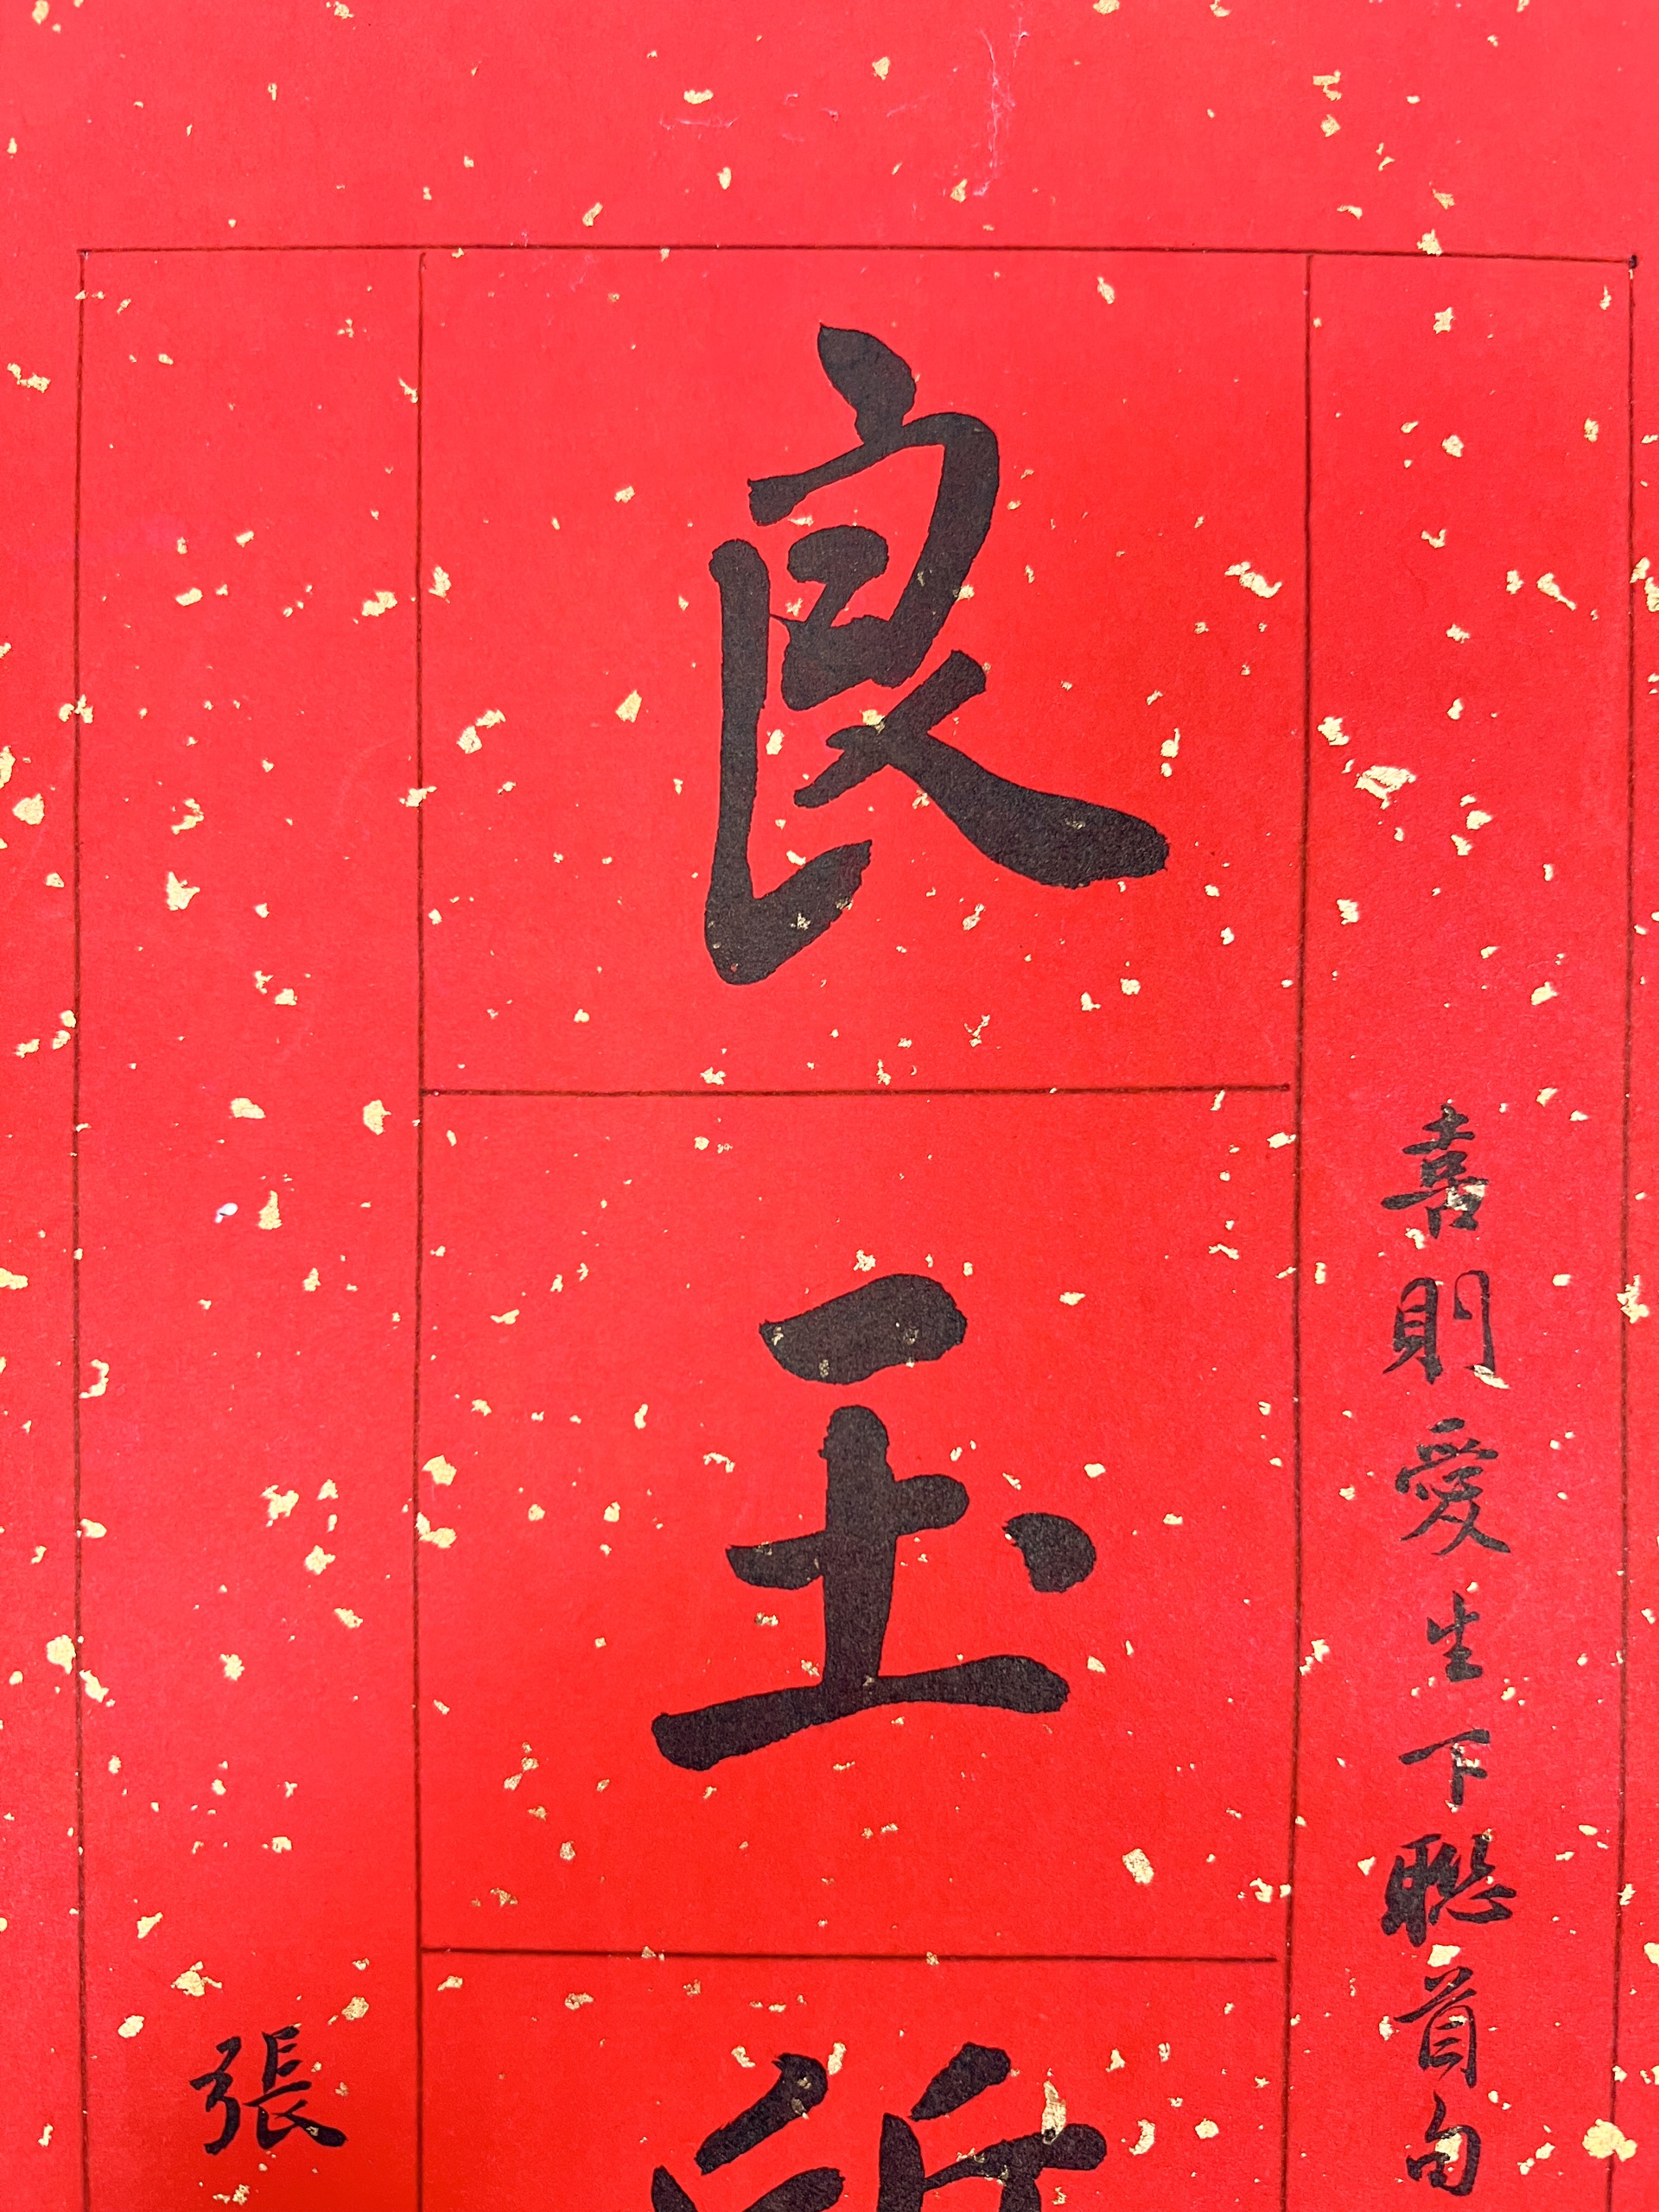 喜則愛生下聯首句
良玉
張